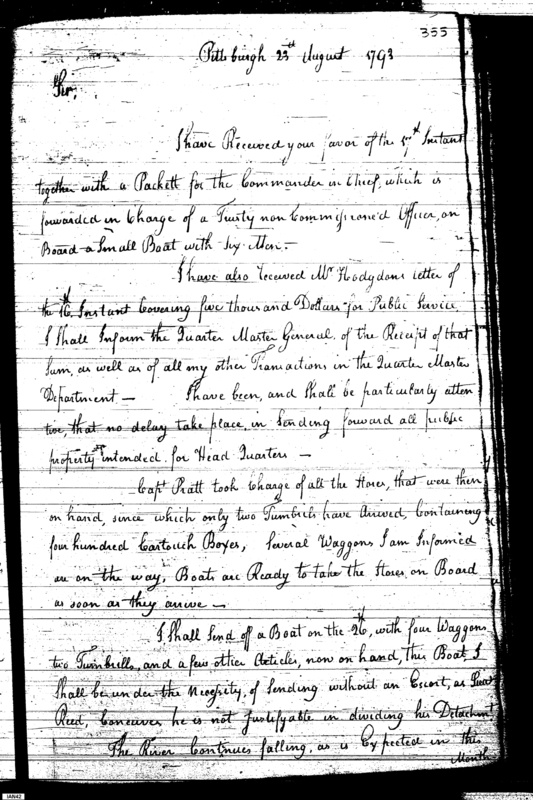 355
Pittsburgh 23rd August 1793
Sir,
I have Received your favor of the 17th Instant
together with a Packett for the Commander in Chief, which is
forwarded in Charge of a Trusty non Commissioned Officer, on
Board a Small Boat with Six Men.—
I have also received Mr Hodgdons letter of
the 16th Instant Covering five thousand Dollars for Public Service
I Shall Inform the Quarter Master General of the Receipt of that
Sum, as well as of all my other Transactions in the Quarter Master
Department — I have been, and Shall be particularly atten
tive, that no delay take place, in Sending forward all public
property intended for Head Quarters —
Capt Pratt took Charge of all the Stores, that were then
on hand, since which only two Tumbrils have Arrived, Containing
four hundred Cartouch Boxes, Several Waggons I am Inform'd
are on the way, Boats are Ready to take the Stores on Board
as soon as they arrive —
I Shall Send off a Boat on the 26th, with four Waggons
two Tumbrills, and a few other Articles, now on hand, this Boat, I
Shall be under the Necessity, of Sending without an Escort, as Lieut
Reed, Conceives he is not Justifyable in dividing his Detachmt
The River Continues falling, as is Expected in this
Month
IAN42